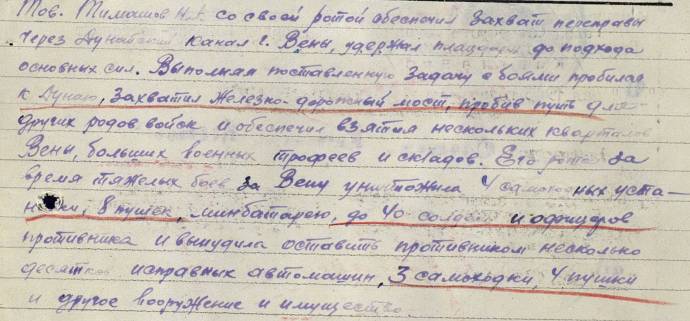 Тов. Тимашов Н.А. со своей ротой обеспечил захват переправы
через Дунайский канал г. Вены, удержал плацдарм до подхода
основных сил. Выполняя поставленную задачу с боями пробился
к Дунаю, захватил железно-дорожный мост, пробив путь для
других родов войск и обеспечил взятия нескольких кварталов
Вены, больших военных трофеев и складов. Его рота за
время тяжелых боев за Вену уничтожила 4 самоходных уста-
новки, 8 пушек, минбатарею, до 40 солдат и офицеров
противника и вынудила оставить противником несколько
десятков исправных автомашин, 3 самоходки, 4 пушки
и другое вооружение и имущество.